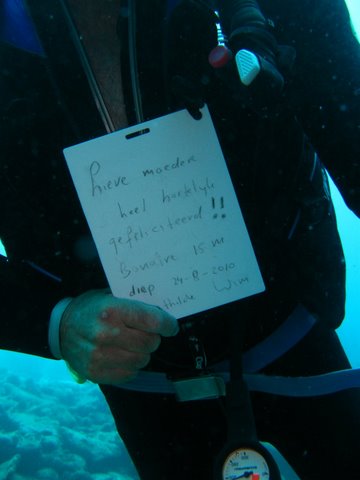 Lieve moeder
heel hartelijk
gefeliciteerd !!
Bonaire 15 m
diep 24-8-2010
Hilde Wim